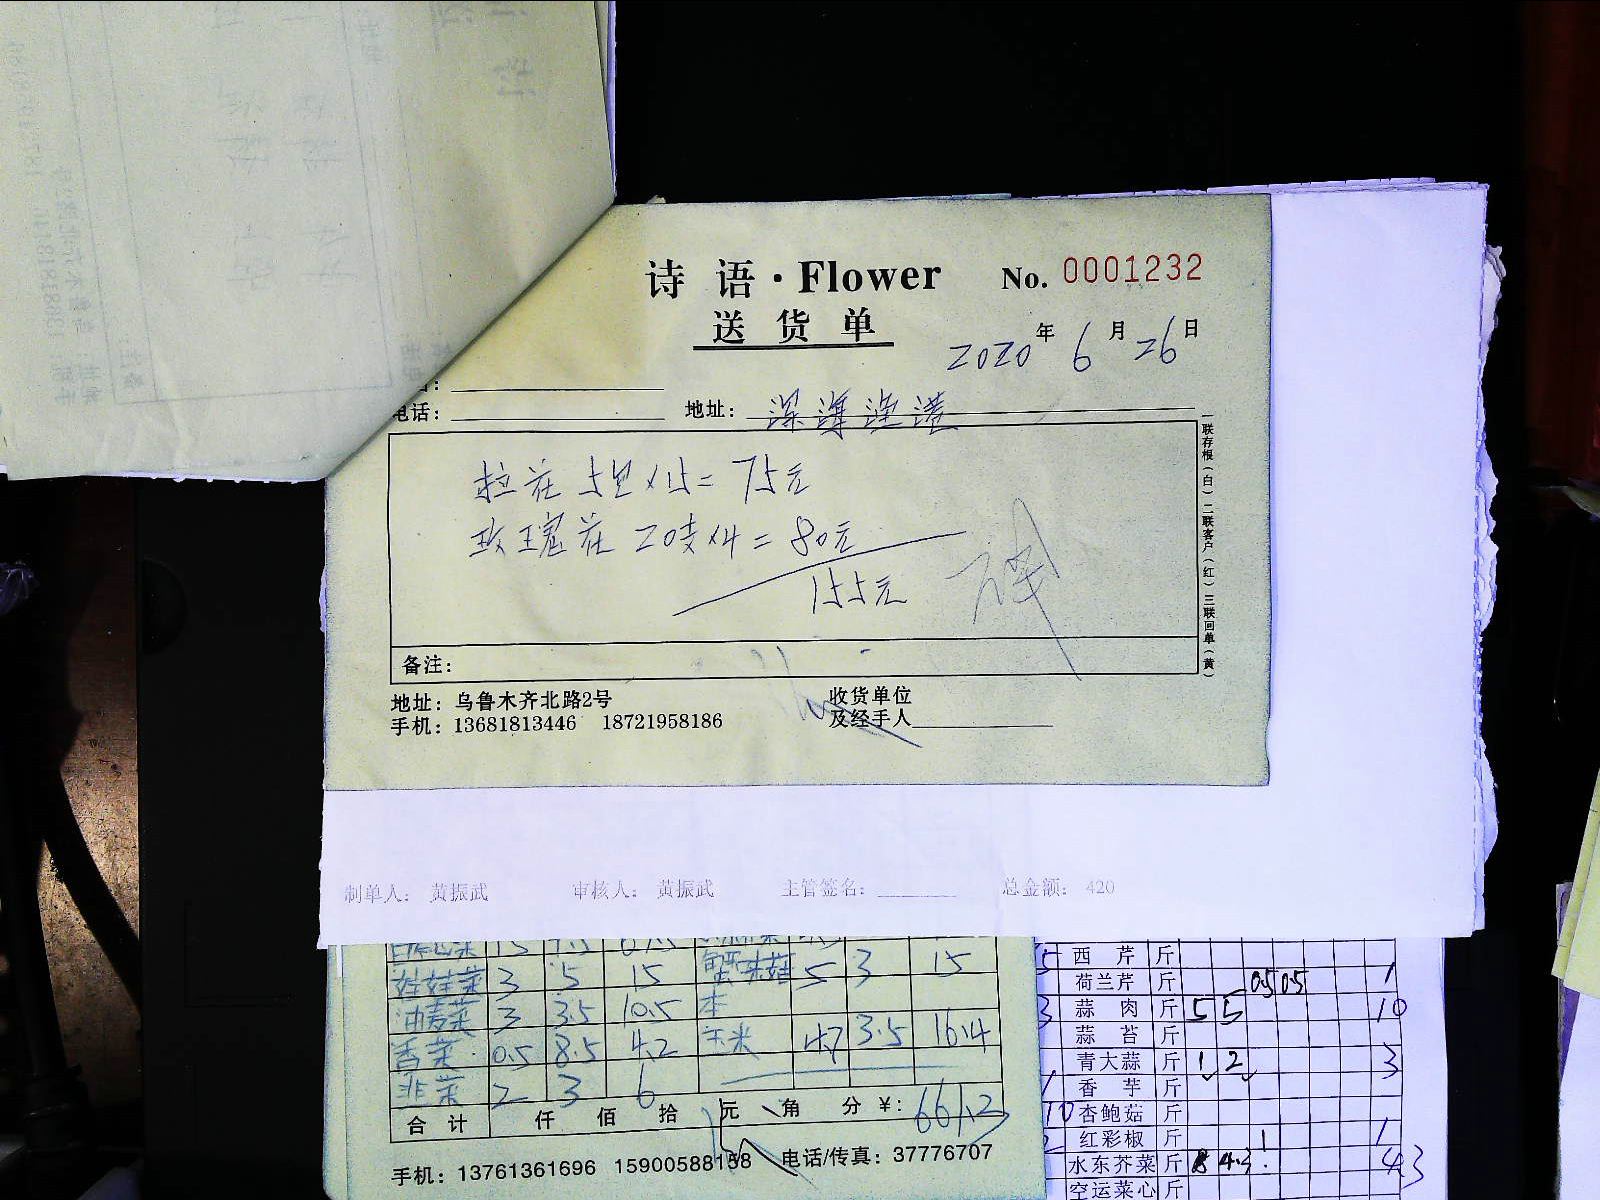 诗语·Flower No. 0001232
送货单
2020年6月26日
电话: 地址: 深海渔港
拉花 5包×15=75元
玫瑰花 20支×4=80元
155元
备注:
地址: 乌鲁木齐北路2号 收货单位
手机: 13681813446 18721958186 及经手人
一联存根(白)二联客户(红)三联回单(黄)
制单人: 黄振武 审核人: 黄振武 主管签名: 总金额: 420
娃娃菜 3 5 15 5 3 15
油麦菜 3 3.5 10.5 本
香菜 0.5 8.5 4.2 玉米 4.7 3.5 16.4
韭菜 2 3 6
合计 仟 佰 拾 元 角 分 ¥: 661.2
手机: 13761361696 15900588158 电话/传真: 37776707
西芹 斤
荷兰芹 斤 0.5 0.5 1
蒜肉 斤 5 5 10
蒜苔 斤
青大蒜 斤 1 2 3
香芋 斤
杏鲍菇 斤
红彩椒 斤 1 1
水东芥菜 斤 43
空运菜心 斤